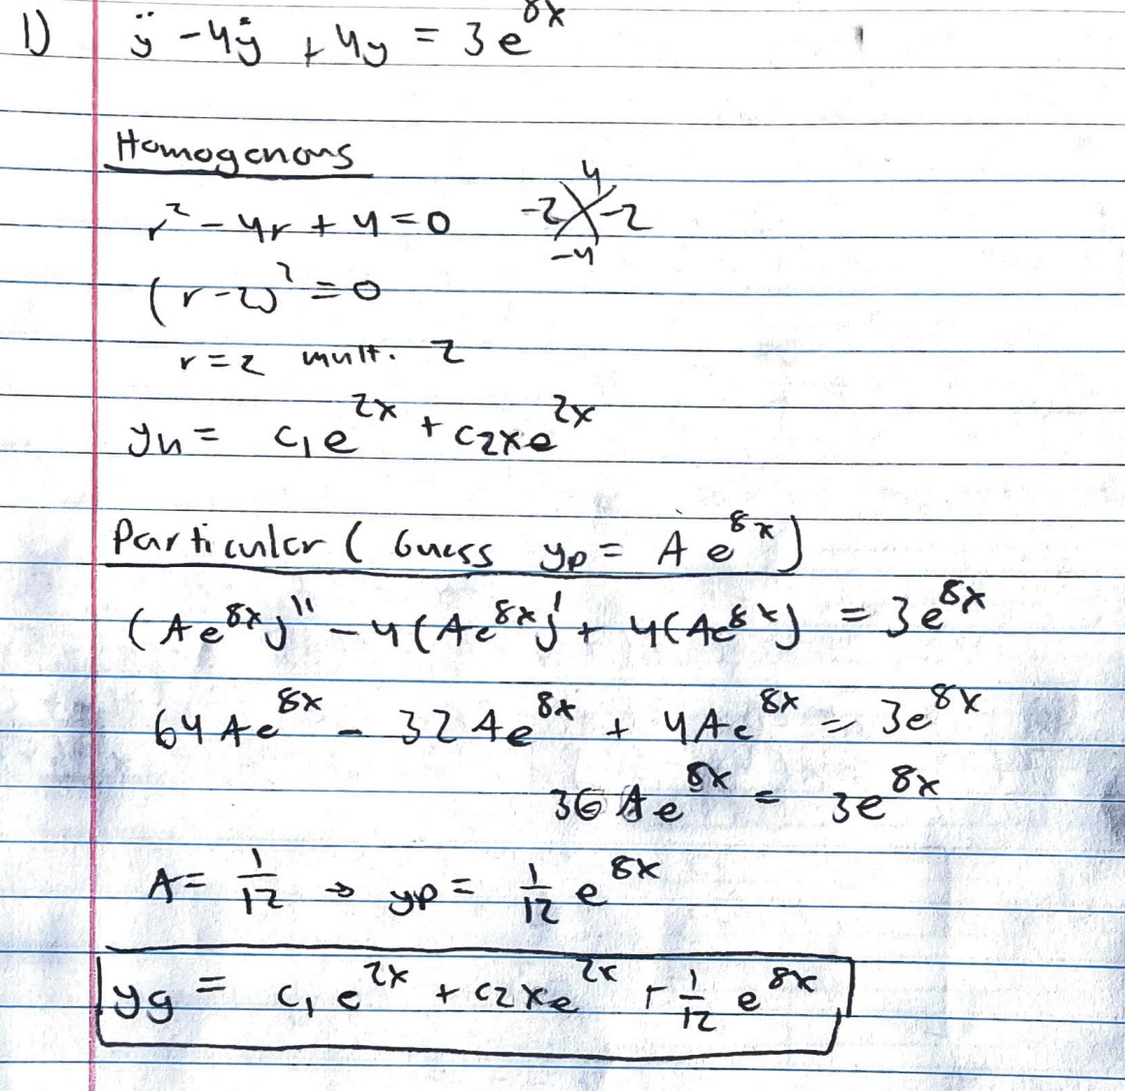 1) ÿ - 4ẏ + 4y = 3e^8x
Homogenous
r^2 - 4r + 4 = 0
4
-2 -2
-4
(r-2)^2 = 0
r = 2 mult. 2
yh = c1e^2x + c2xe^2x
Particular ( Guess yp = A e^8x )
(Ae^8x)'' - 4(Ae^8x)' + 4(Ae^8x) = 3e^8x
64Ae^8x - 32Ae^8x + 4Ae^8x = 3e^8x
36Ae^8x = 3e^8x
A = 1/12 → yp = 1/12 e^8x
yg = c1e^2x + c2xe^2x + 1/12 e^8x